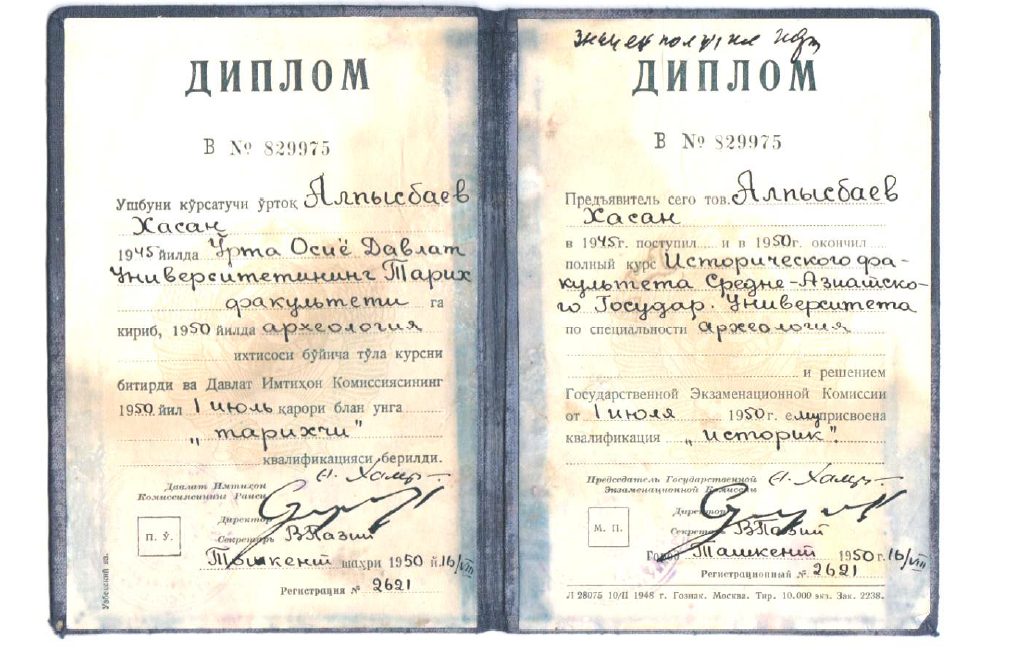 ДИПЛОМ
В № 829975
Ушбуни кўрсатучи ўртоқ Алпысбаев
Хасан
1945 йилда Ўрта Осиё Давлат
Университетининг Тарих
факультети га
кириб, 1950 йилда археология
ихтисоси бўйича тўла курсни
битирди ва Давлат Имтиҳон Комиссиясининг
1950 йил 1 июль қарори блан унга
„тарихчи"
квалификацияси берилди.
Давлат Имтиҳон
Комиссиясининг Раиси
Директор
Секретарь
П. Ў.
Тошкент шаҳри 1950 й. 16/VIII
Регистрация № 2621
Узбекский яз.
значек получил
ДИПЛОМ
В № 829975
Предъявитель сего тов. Алпысбаев
Хасан
в 1945 г. поступил и в 1950 г. окончил
полный курс Исторического фа-
культета Средне-Азиатско-
го Государ. Университета
по специальности археология
и решением
Государственной Экзаменационной Комиссии
от 1 июля 1950 г. ему присвоена
квалификация „историк".
Председатель Государственной
Экзаменационной Комиссии
Директор
Секретарь
М. П.
Город Ташкент 1950 г. 16/VIII
Регистрационный № 2621
Л 28075 10/II 1948 г. Гознак. Москва. Тир. 10.000 экз. Зак. 2238.